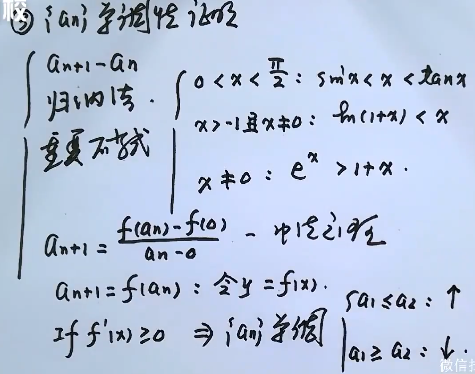 校
③ {an} 单调性证明
an+1 - an
归纳法.
重要不等式
0 < x < π/2 : sinx < x < tanx
x > -1 且 x ≠ 0 : ln(1+x) < x
x ≠ 0 : e^x > 1+x.
an+1 = (f(an) - f(0))/(an - 0) - 中值定理
an+1 = f(an) : 令 y = f(x).
If f'(x) ≥ 0 ⇒ {an} 单调
a1 ≤ a2 : ↑
a1 ≥ a2 : ↓.
微信扫